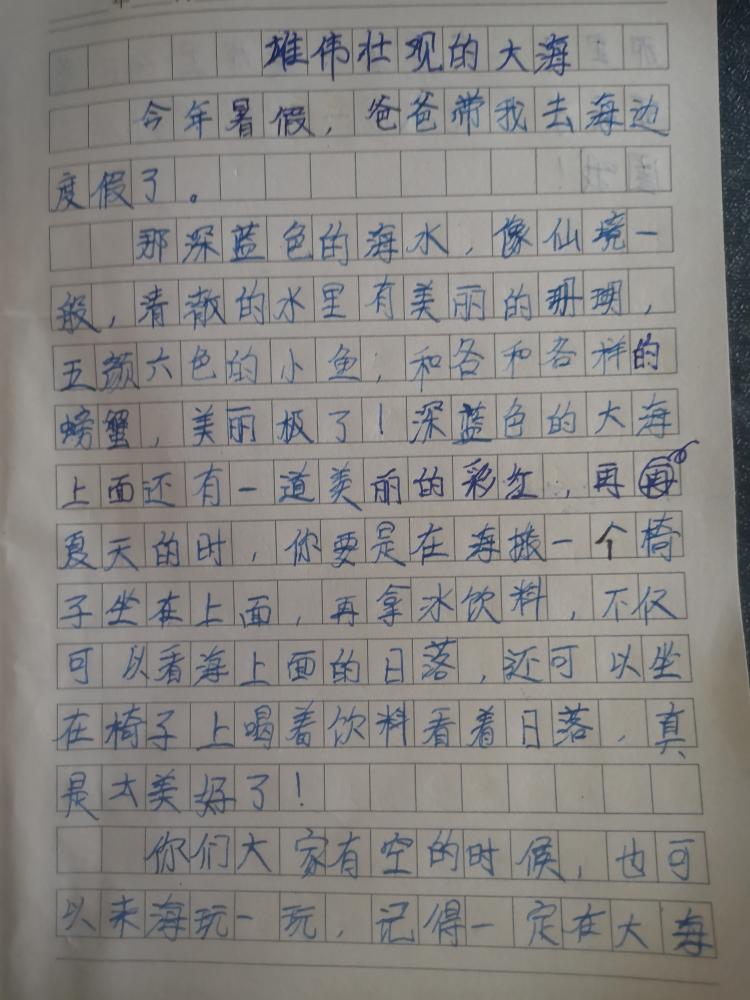 雄伟壮观的大海
今年暑假，爸爸带我去海边
度假了。
那深蓝色的海水，像仙境一
般，清澈的水里有美丽的珊瑚，
五颜六色的小鱼，和各和各样的
螃蟹，美丽极了！深蓝色的大海
上面还有一道美丽的彩红，再
夏天的时，你要是在海搬一个椅
子坐在上面，再拿冰饮料，不仅
可以看海上面的日落，还可以坐
在椅子上喝着饮料看着日落，真
是太美好了！
你们大家有空的时候，也可
以来海玩一玩，记得一定在大海